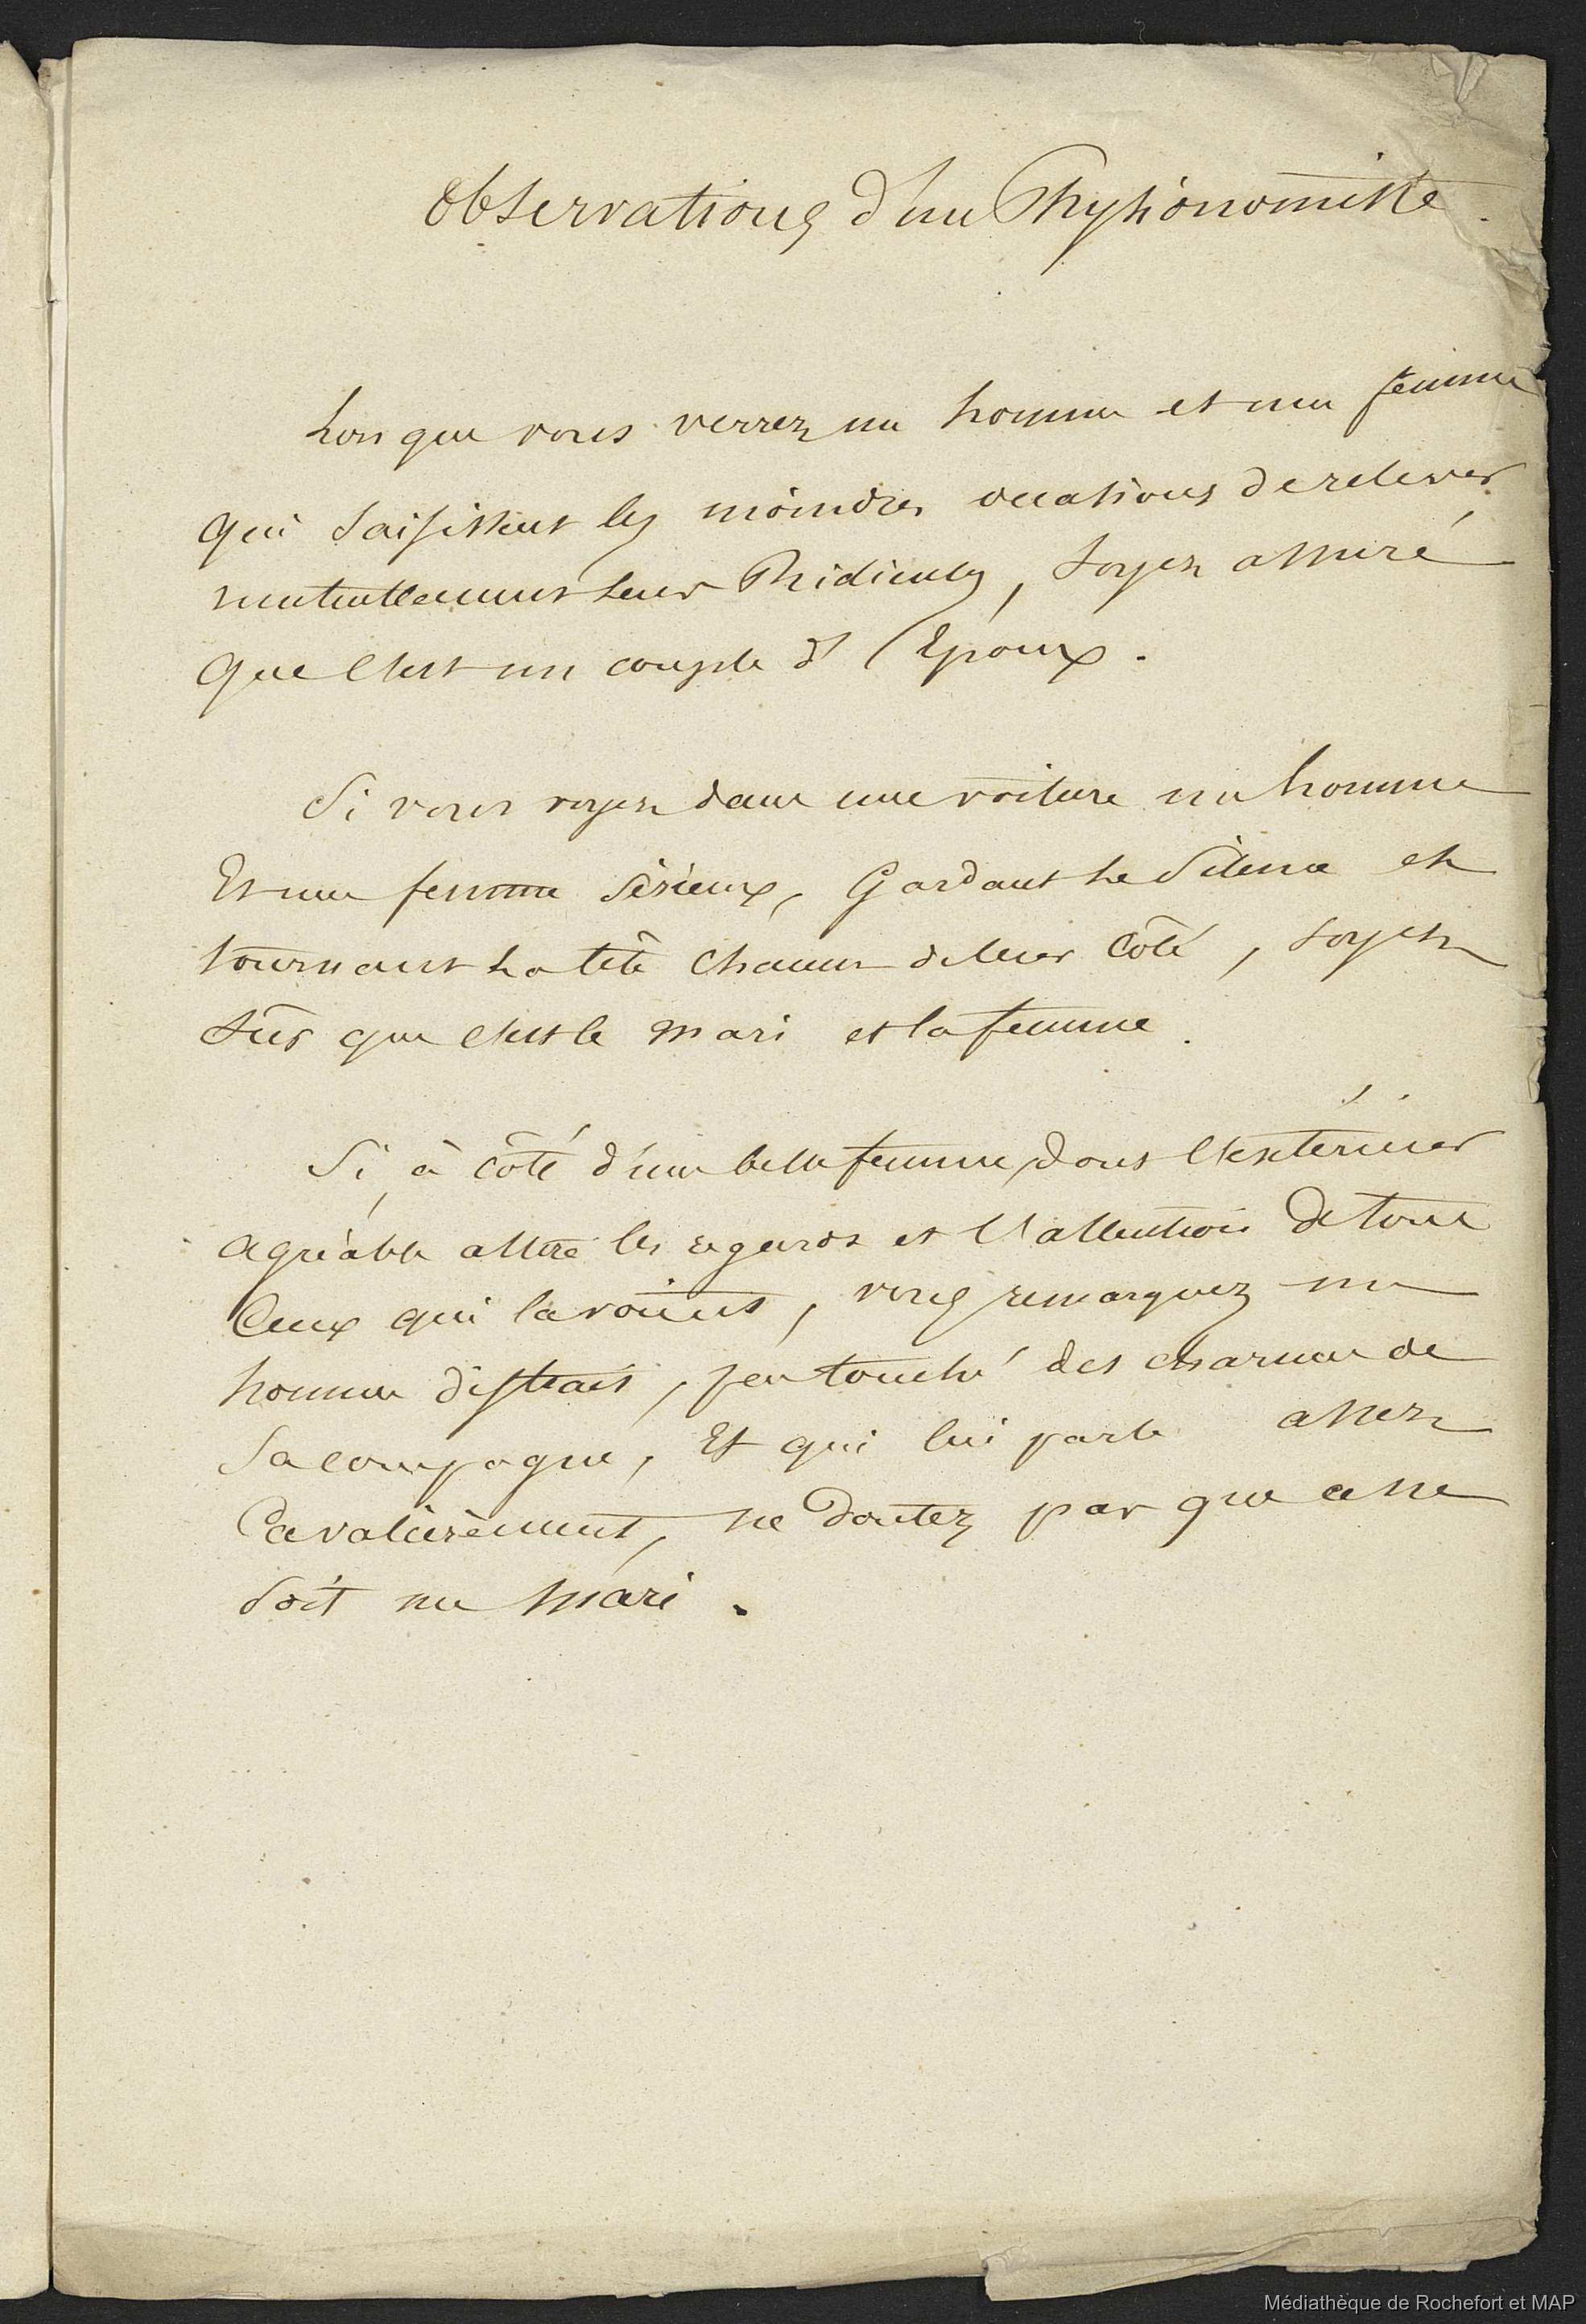 Observations d'un Physionomiste.
Lorsque vous verrez un homme et une femme
qui saisissent les moindres occasions de relever
mutuellement leurs Ridicules, soyez assuré
que c'est un couple d'Epoux.
Si vous voyez dans une voiture un homme
Et une femme sérieux, Gardant le silence et
tournant la tête chacun de leur côté, soyez
sûr que c'est le mari et la femme.
Si, à côté d'une belle femme, dont l'extérieur
agréable attire les regards et l'attention de tous
Ceux qui la voient, vous remarquez un
homme distrait, peu touché des charmes de
sa compagne, Et qui lui parle assez
Cavalièrement, ne doutez pas que ce ne
soit un mari.
Médiathèque de Rochefort et MAP